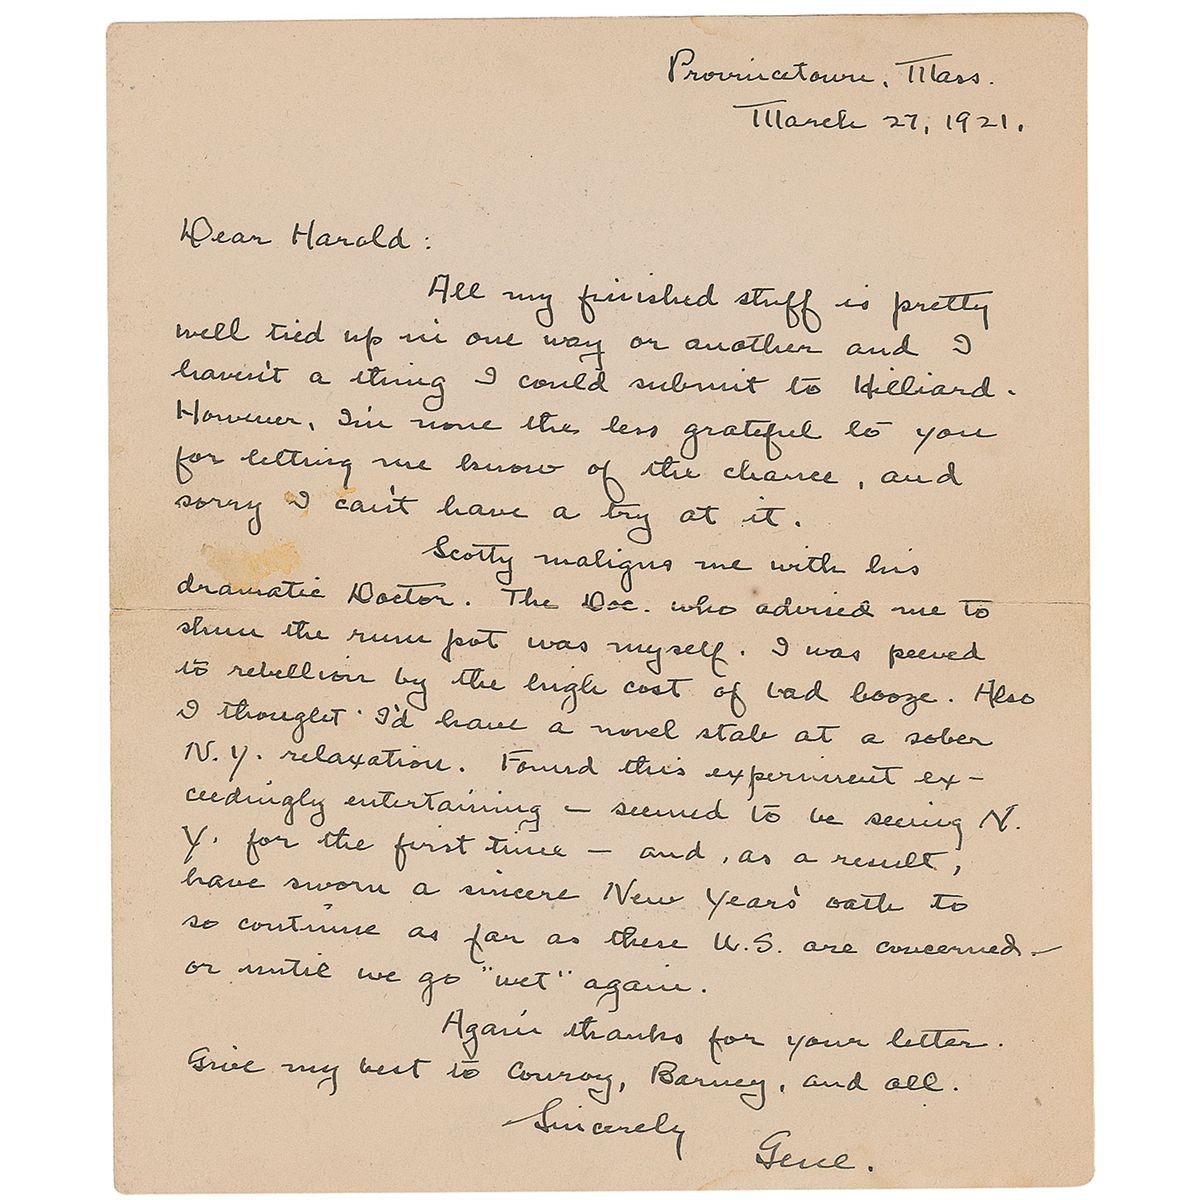 Provincetown, Mass.
March 27, 1921.
Dear Harold:
All my finished stuff is pretty
well tied up in one way or another and I
haven't a thing I could submit to Hilliard.
However, I'm none the less grateful to you
for letting me know of the chance, and
sorry I can't have a try at it.
Scotty maligns me with his
dramatic Doctor. The Doc. who advised me to
shun the rum pot was myself. I was peeved
to rebellion by the high cost of bad booze. Also
I thought I'd have a novel stab at a sober
N.Y. relaxation. Found this experiment ex-
ceedingly entertaining - seemed to be seeing N.
Y. for the first time - and, as a result,
have sworn a sincere New Years' oath to
so continue as far as these U.S. are concerned -
or until we go "wet" again.
Again thanks for your letter.
Give my best to Conroy, Barney, and all.
Sincerely
Gene.